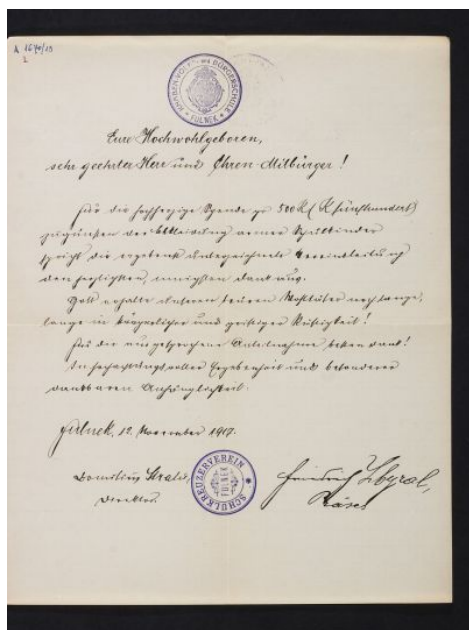 A 1679/19
2
KNABEN-VOLKS- UND BÜRGERSCHULE
* FULNEK *
Eure Hochwohlgeboren,
sehr geehrter Herr und Ehren-Mitbürger!
Für die hochherzige Spende zu 500 K (K fünfhundert)
zugunsten der Bekleidung armer Schulkinder
spricht die ergebenst unterzeichnete Vereinsleitung
den herzlichsten, innigsten Dank aus.
Gott erhalte unseren teuren Wohltäter noch lange,
lange in körperlicher und geistiger Rüstigkeit!
Für die ausgesprochene Anteilnahme besten Dank!
In hochachtungsvoller Ergebenheit und besonderer
dankbaren Anhänglichkeit.
Fulnek, 12. November 1917.
SCHULKREUZERVEREIN
FULNEK
Direktor.
Friedrich